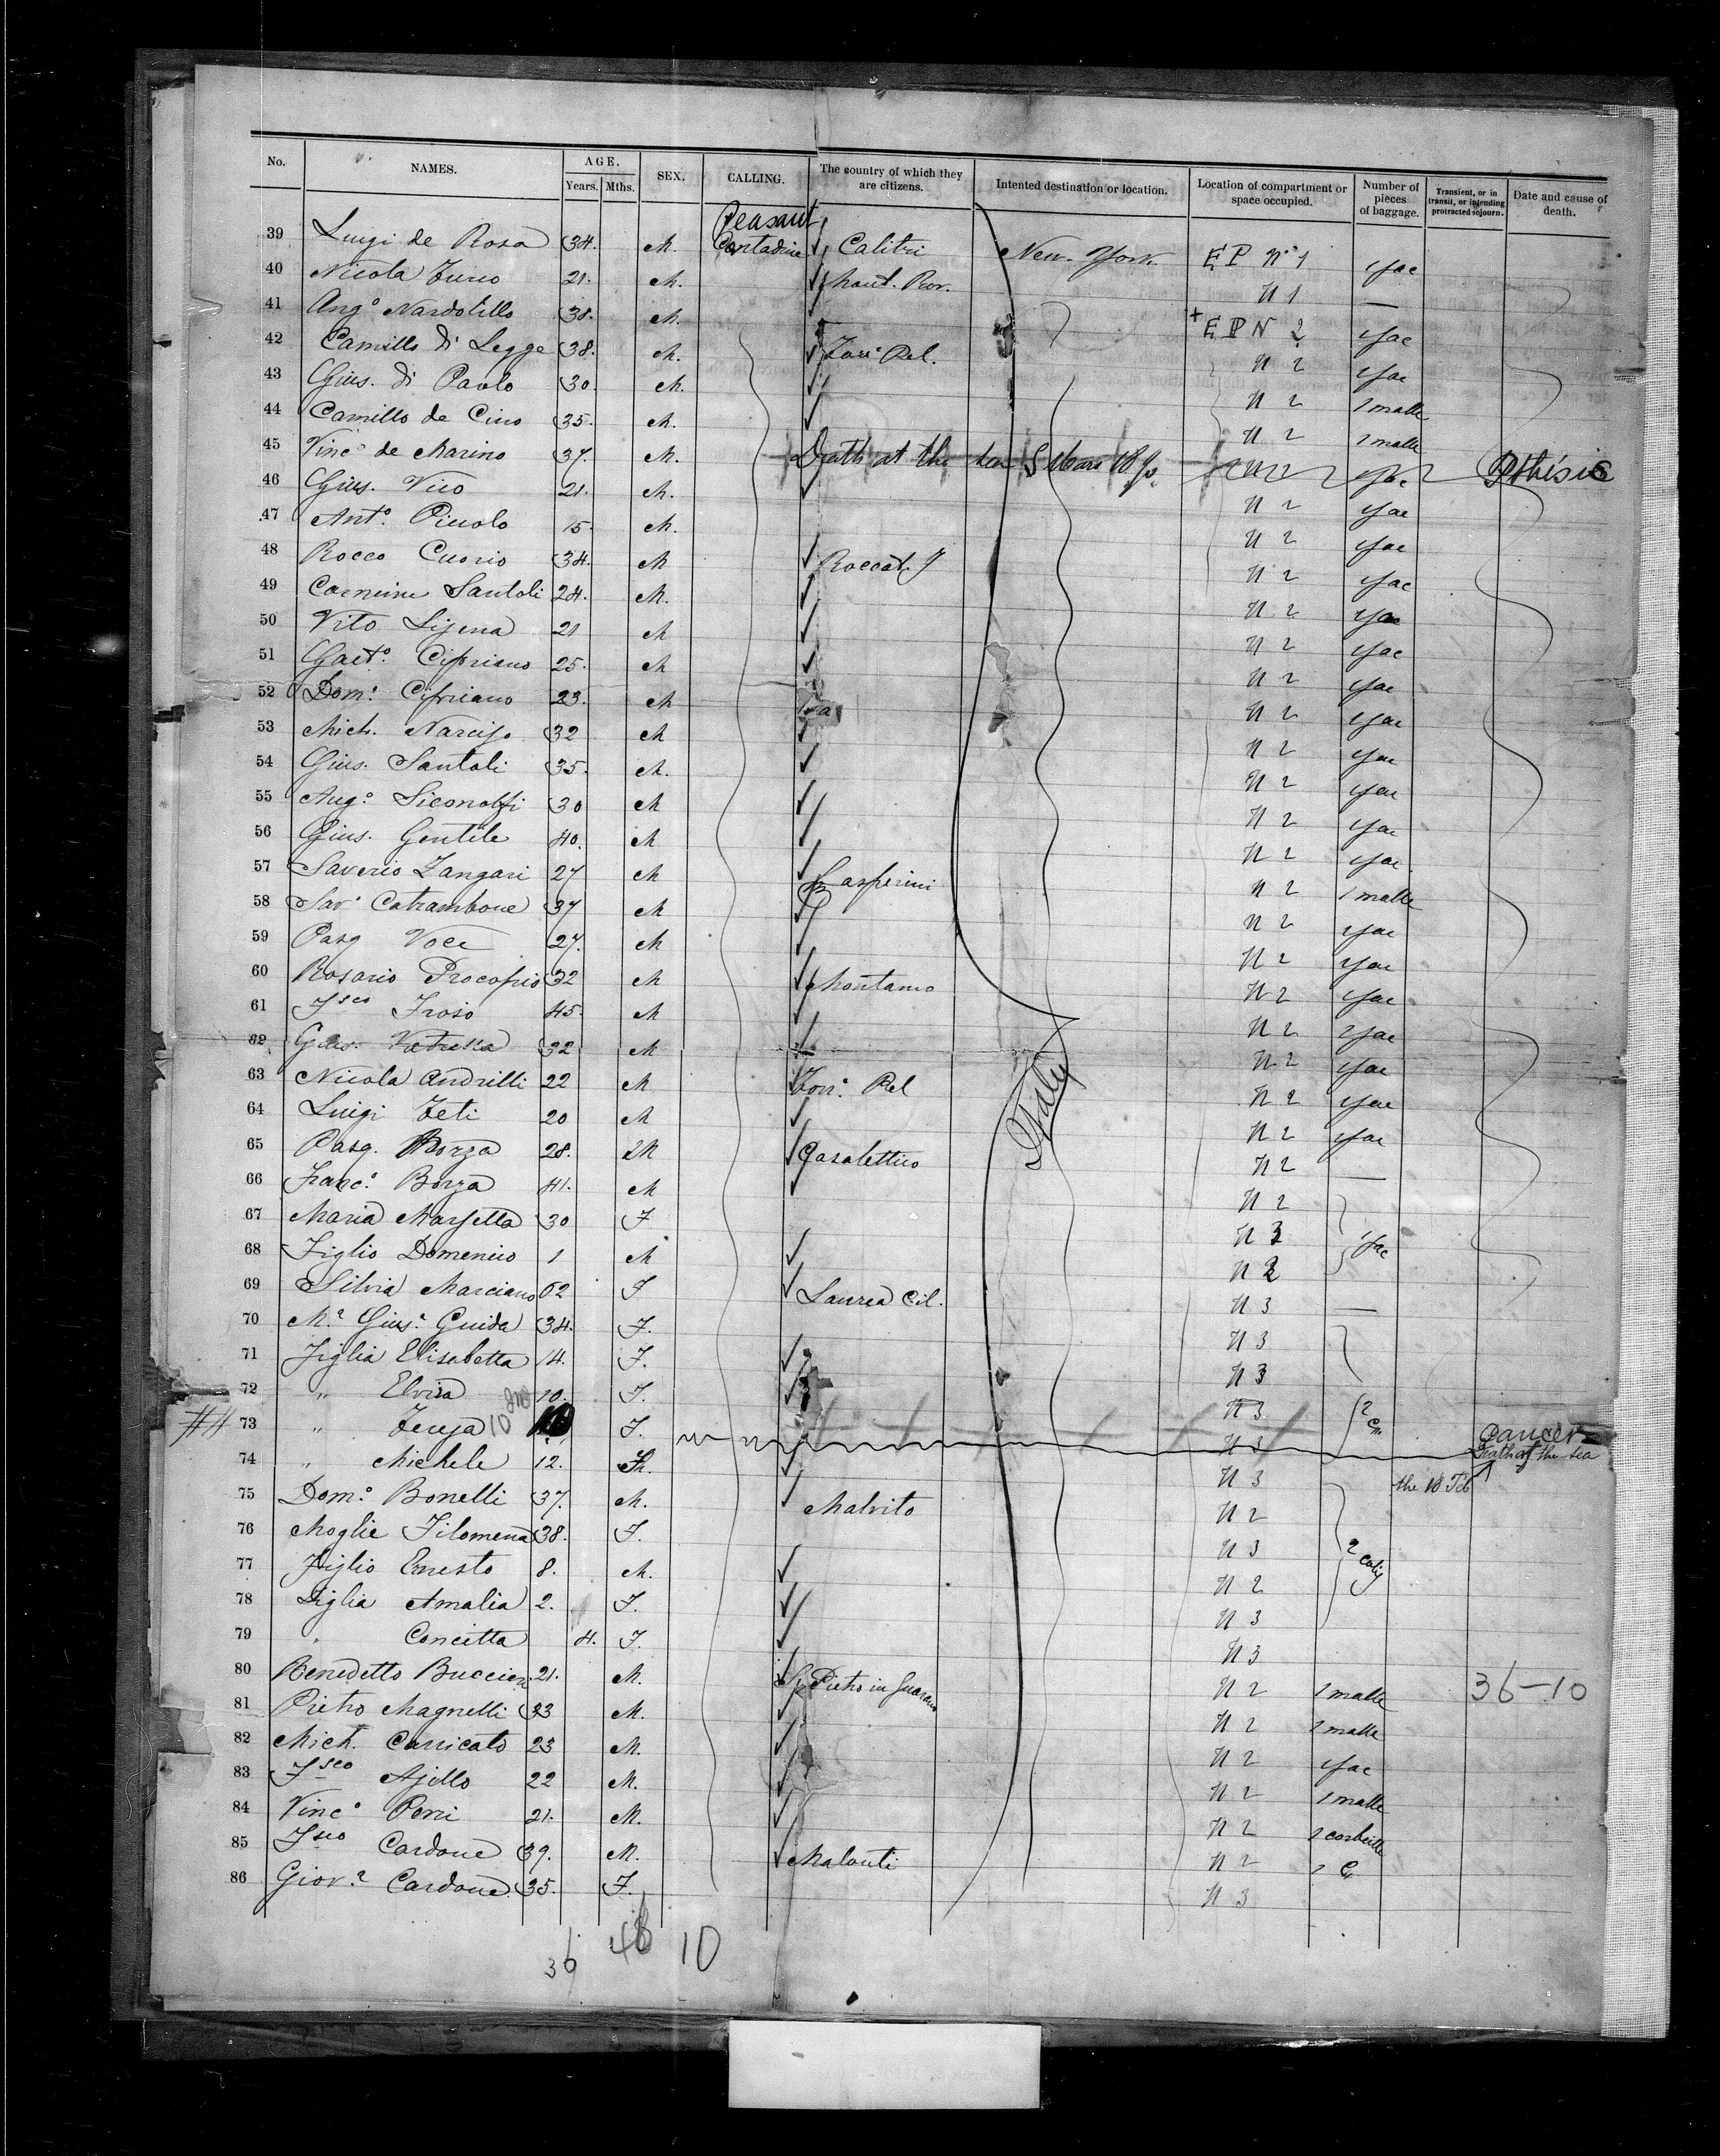 No. NAMES. AGE. Years. Mths. SEX. CALLING. The country of which they are citizens. Intented destination or location. Location of compartment or space occupied. Number of pieces of baggage. Transient, or in transit, or intending protracted sojourn. Date and cause of death.
Peasant
39 Luigi de Rosa 34. M. Contadine Calitri New-York EP No 1 1 sac
40 Nicola 21. M. N 1 —
41 Ango Nardolillo 38. M. + EPN 2 1 sac
42 Camillo di Legge 38. M. N 2 1 sac
43 Gius. di Paolo 30. M. N 2 1 malle
44 Camillo de Cino 35. M. N 2 1 malle
45 Vinco de Marino 37. M. Death at the sea 5 Mars N 2 1 sac Pthisic
46 Gius. Vico 21. M. N 2 1 sac
47 Anto. Piccolo 15. M. N 2 1 sac
48 Rocco Cuorio 34. M N 2 1 sac
49 Carmine Santoli 24. M. N 2 1 sac
50 Vito 21 M N 2 1 sac
51 Gaeto. Cipriano 25. M N 2 1 sac
52 Domo. Cipriano 23. M N 2 1 sac
53 Mich. Narciso 32 M N 2 1 sac
54 Gius. Santoli 35. M. N 2 1 sac
55 Ango. Siconolfi 30 M N 2 1 sac
56 Gius. Gentile 40. M N 2 1 sac
57 Saverio Zangari 27 M N 2 1 malle
58 Savo Catrambone 37 M N 2 1 sac
59 Pasq Voce 27. M N 2 1 sac
60 Rosario Procopio 32 M N 2 1 sac
61 Fsco Froso 45. M N 2 1 sac
62 Gius. 32 M N 2 1 sac
63 Nicola Andrilli 22 M N 2 1 sac
64 Luigi Zeti 20 M N 2 1 sac
Italy
65 Pasq. Borza 28. M Casalettico N 2 —
66 Franco. Borza 41. M N 2
67 Maria Marsella 30 F N 3 1 sac
68 Figlio Domenico 1 M N 2
69 Silvia Marciano 62 F Laurea Cil. N 3 —
70 Ma Giusa Guida 34. F. N 3
71 Figlia Elisabetta 14. F. N 3
72 " Elvira 10. F. N 3 2
73 " 10 F. N 3 Cancer
Death at the sea
74 " Michele 12. N 3 the 18 Feb
75 Domo. Bonelli 37. M. Malvito N 2
76 Moglie Filomena 38. F. N 3 2 colis
77 Figlio Ernesto 8. M. N 2
78 Figlia Amalia 2. F. N 3
79 " Concetta 4. F. N 3
80 Benedetto Buccieri 21. M. S. Pietro in Guarano N 2 1 malle 36-10
81 Pietro Magnelli 33 M. N 2 1 malle
82 Mich. Carricato 23 M. N 2 1 sac
83 Fsco Ajello 22 M. N 2 1 malle
84 Vinco Perri 21. M. N 2 1 corbeille
85 Fsco Cardone 39. M. N 2
86 Giova Cardone 35. F. N 3
36 48 10